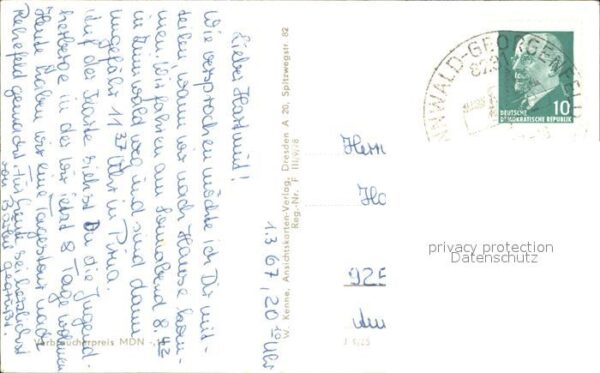 Lieber Hartmut!
Wie versprochen möchte ich Dir mit-
teilen, wann wir nach Hause kom-
men. Wir fahren am Sonnabend 8.42
in Zinnwald los und sind dann
ungefähr 11.37 Uhr in Pirna.
Auf der Karte siehst Du die Jugend-
herberge in der wir jetzt 8 Tage wohnen
Heute haben wir eine Tagestour nach
Rehefeld gemacht. Für heute sei herzlichst
von gegrüßt.
1.3.67, 20 Uhr
Verbraucherpreis MDN
W. Kenne, Ansichtskarten-Verlag, Dresden A 20, Spitzwegstr. 82
Reg.-Nr. F III/9/8
NNWALD-GEORGENFELD
10
DEUTSCHE
DEMOKRATISCHE REPUBLIK
Herrn
privacy protection
Datenschutz